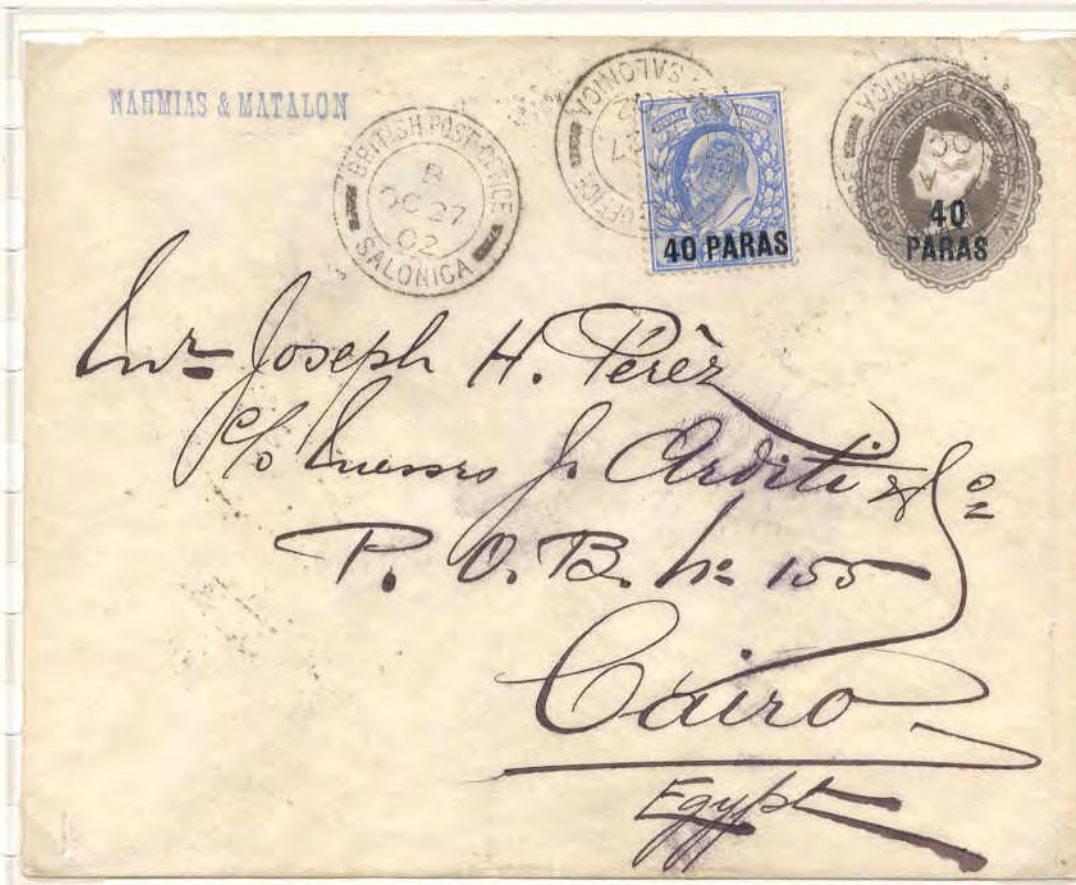 NAHMIAS & MATALON
BRITISH POST OFFICE
B
OC 27
02
SALONICA
SALONICA
OFFICE
40 PARAS
40
PARAS
Mr Joseph H. Pérèz
c/o Messrs J. Arditi & Co
P. O. B. No 155
Cairo
Egypt